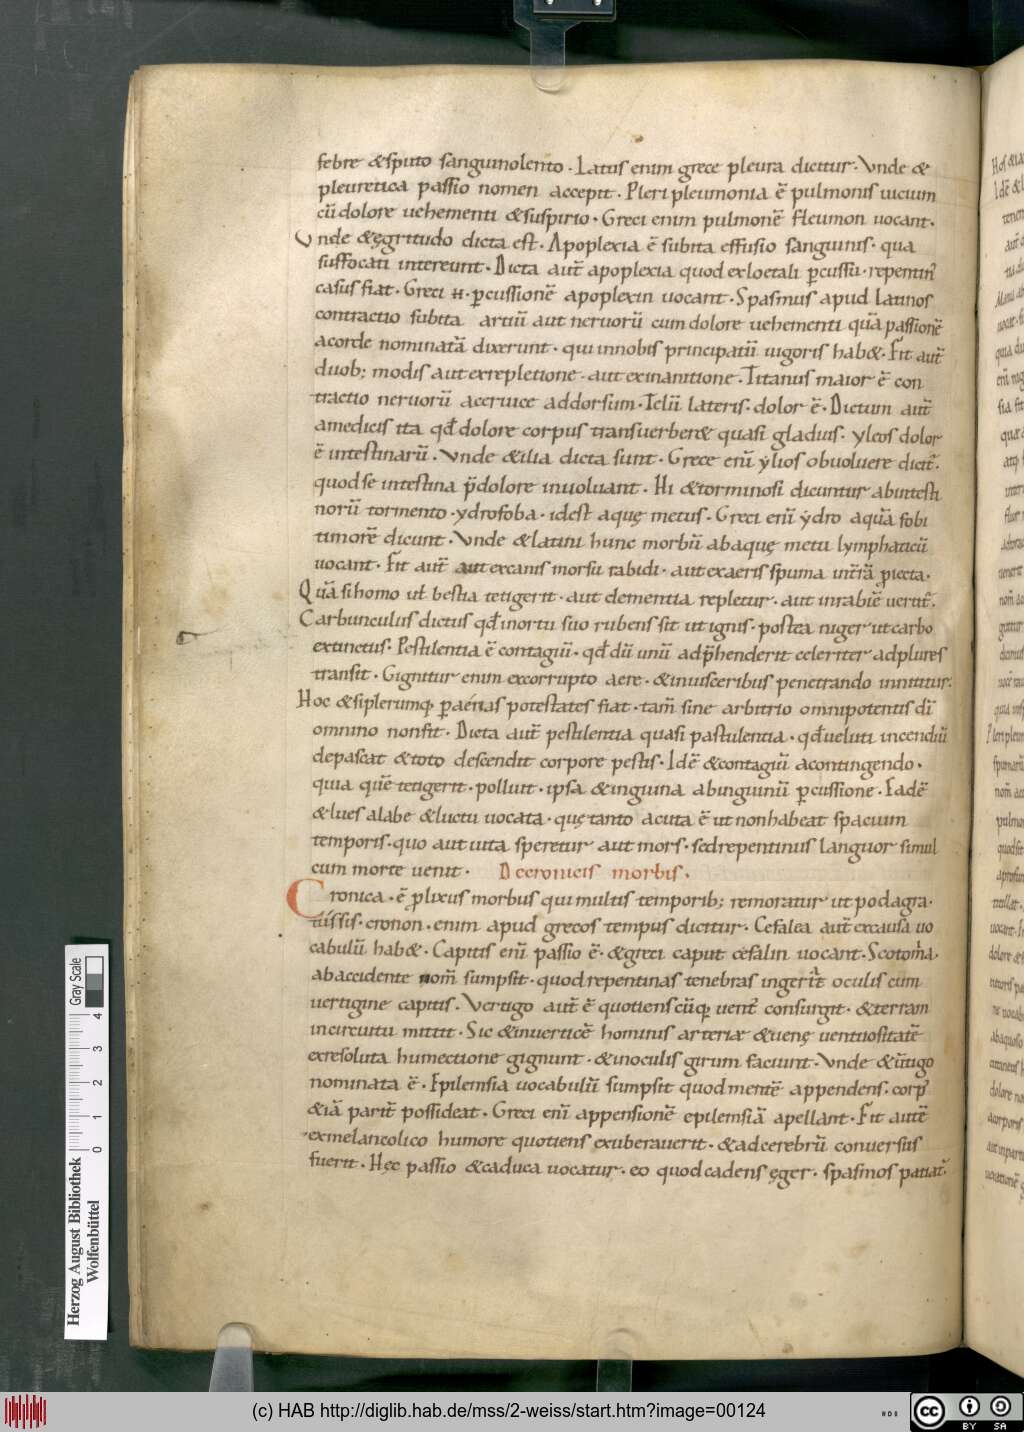 febre & sputo sanguinolento · Latus enim grece pleura dicitur · Vnde &
pleuretica passio nomen accepit · Pleri pleumonia ē pulmonis uicium
cū dolore uehementi & suspirio · Greci enim pulmonē fleumon uocant ·
Vnde & ęgritudo dicta est · Apoplexia ē subita effusio sanguinis · qua
suffocati intereunt · Dicta aut̄ apoplexia quod ex loetali ꝑcussu · repentin᾽
casus fiat · Greci ·H· ꝑcussionē apoplexin uocant · Spasmus apud latinos
contractio subita artiū aut neruorū cum dolore uehementi quā passionē
acorde nominatā dixerunt · qui in nobis principatū uigoris hab& · Fit aut̄
duob; modis aut exrepletione · aut exinanitione · Titanus maior ē con
tractio neruorū aceruice addorsum · Telū lateris · dolor ē · Dictum aut̄
amedicis ita qd̄ dolore corpus transuerber& quasi gladius · yleos dolor
ē intestinarū · Vnde & ilia dicta sunt · Grece enī ylios obuoluere dicit᾽ ·
quod se intestina p̄ dolore inuoluant · Hi & torminosi dicuntur abintesti
norū tormento · ydrofoba · idest aquę metus · Greci enī ydro aquā fobi
timorē dicunt · Vnde & latini hunc morbū abaquę metu lymphaticū
uocant · Fit aut̄ aut excanis morsu rabidi · aut exaeris spuma int̄rā ꝓiecta ·
Quā si homo ul̄ bestia tetigerit · aut dementia repletur · aut inrabiē uertit᾽ ·
Carbunculus dictus qd̄ inortu suo rubens sit ut ignis · postea niger ut carbo
extinctus · Pestilentia ē contagiū · qd̄ dū unū adp̄henderit celeriter adplures
transit · Gignitur enim excorrupto aere · & inuisceribus penetrando innititur ·
Hoc & si plerumq; ꝑ aerias potestates fiat · tam̄ sine arbitrio omnipotentis dī
omnino non fit · Dicta aut̄ pestilentia quasi pastulentia · qd̄ ueluti incendiū
depascat & toto descendit corpore pestis · Idē & contagiū acontingendo ·
quia quē tetigerit · polluit · ipsa & inguina abinguinū ꝑcussione · Eadē
& lues alabe & luctu uocata · quę tanto acuta ē ut nonhabeat spacium
temporis · quo aut uita speretur aut mors · sed repentinus languor simul
cum morte uenit · De cronicis morbis ·
Cronica · ē ꝓlixus morbus qui multis temporib; remoratur ut podagra ·
tussis · cronon · enim apud grecos tempus dicitur · Cefalea aut̄ excausa uo
cabulū hab& · Capitis enī passio ē · & greci caput cefalin uocant · Scotoma ·
abaccidente nom̄ sumpsit · quod repentinas tenebras ingerit oculis cum
uertigine capitis · Vertigo aut̄ ē quotienscūq; uent᾽ consurgit · & terram
incircuitu mittit · Sic & inuerticē hominis arteriæ & uenę uentuositatē
exresoluta humectione gignunt · & inoculis girum faciunt · Vnde & ūtigo
nominata ē · Epilemsia uocabulū sumpsit quod mentē appendens · corp᾽
& iā parit̄ possideat · Greci enī appensionē epilemsiā apellant · Fit autē
exmelancolico humore quotiens exuberauerit · & adcerebrū conuersus
fuerit · Hęc passio & caduca uocatur · eo quod cadens ęger · spasmos patiat᾽ ·
Herzog August Bibliothek
Wolfenbüttel
Gray Scale
0 1 2 3 4
(c) HAB http://diglib.hab.de/mss/2-weiss/start.htm?image=00124
cc BY SA